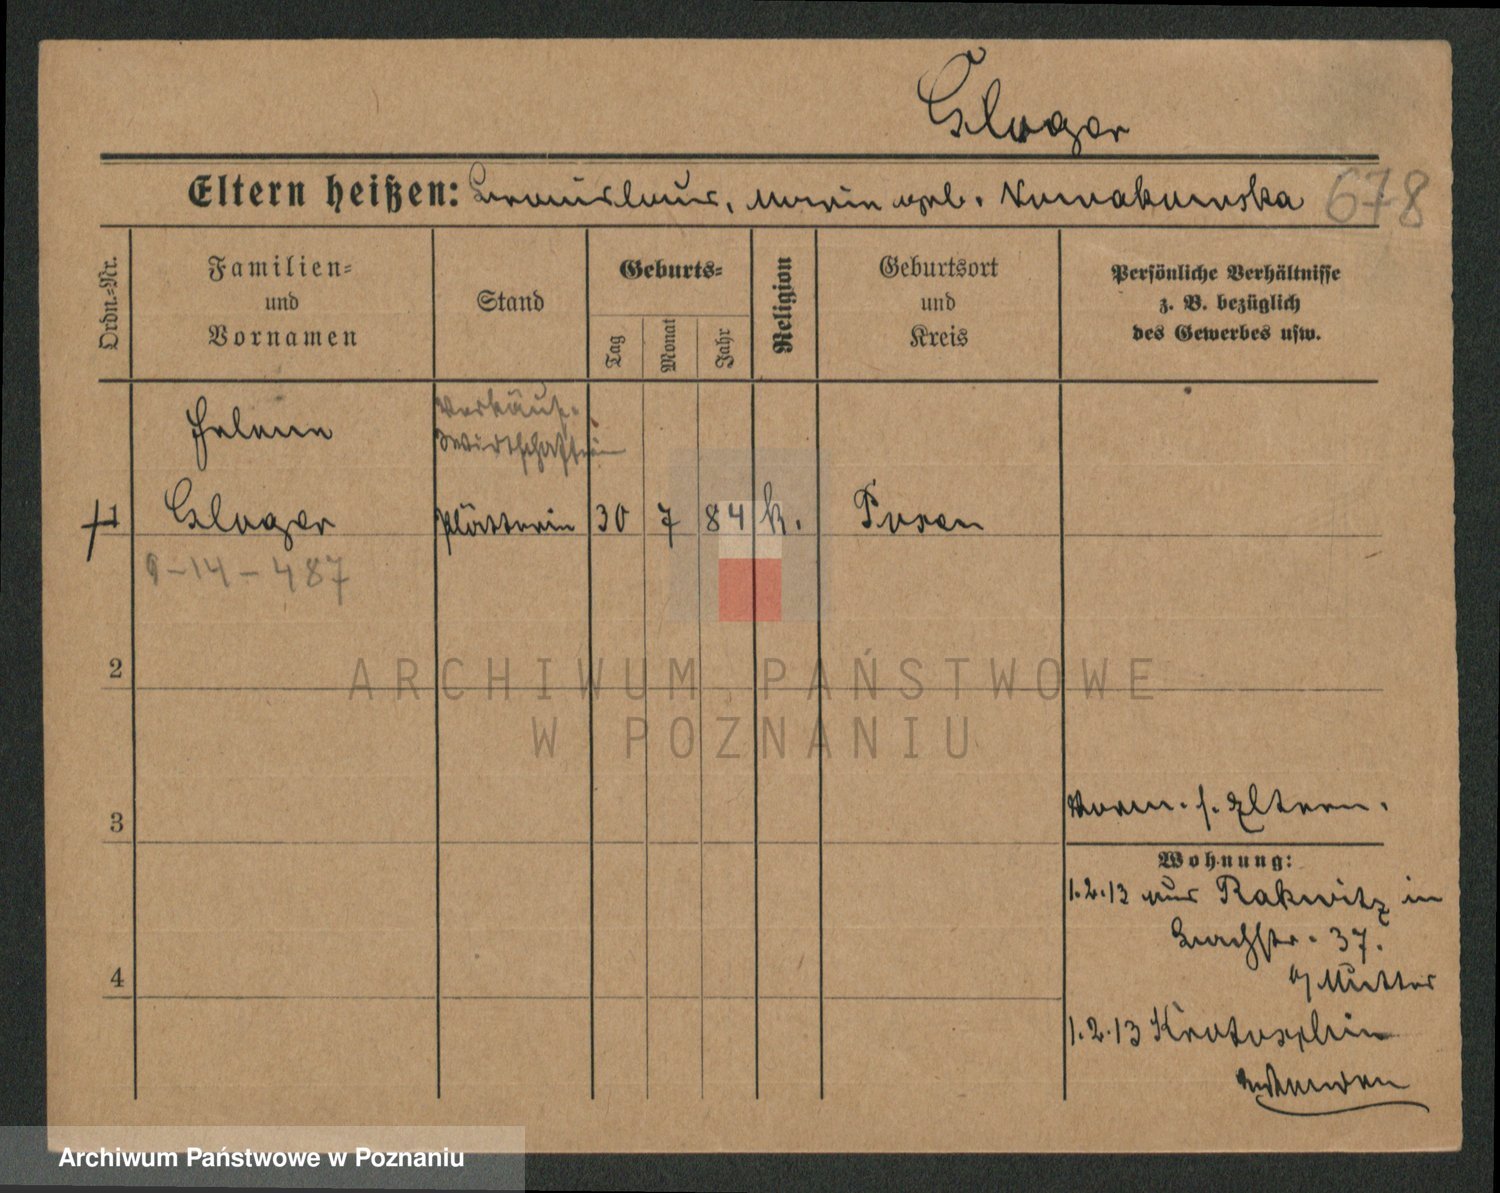 Gloger
Eltern heißen: Bronislaus, Marie geb. Nowakowska 678
Ordn.-Nr.
Familien-
und
Vornamen
Stand
Geburts-
Tag
Monat
Jahr
Religion
Geburtsort
und
Kreis
Persönliche Verhältnisse
z. B. bezüglich
des Gewerbes usw.
Verkäuf.
Wirtschafterin
Helene
1 Gloger Plätterin 30 7 84 k. Posen
9-14-487
2
ARCHIWUM PAŃSTWOWE
W POZNANIU
3
Vorm. s. Eltern.
Wohnung:
1.2.13 aus Rakwitz in
Bachstr. 37.
b/Mutter
4
1.2.13 Krotoschin
Archiwum Państwowe w Poznaniu